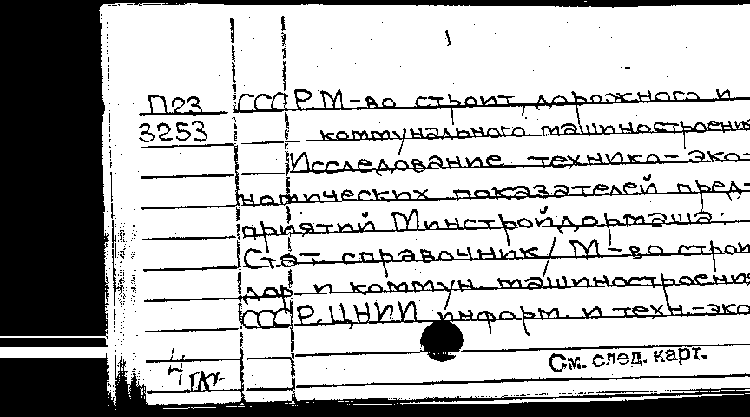 Пез СССР М-во строит, дорожного и
3253 коммунального машиностроения
Исследование технико-эко-
номических показателей пред-
приятий Минстройдормаша:
Стат. справочник / М-во строи
дор и коммун. машиностроения
СССР, ЦНИИ информ. и техн.-эко
См. след. карт.
4